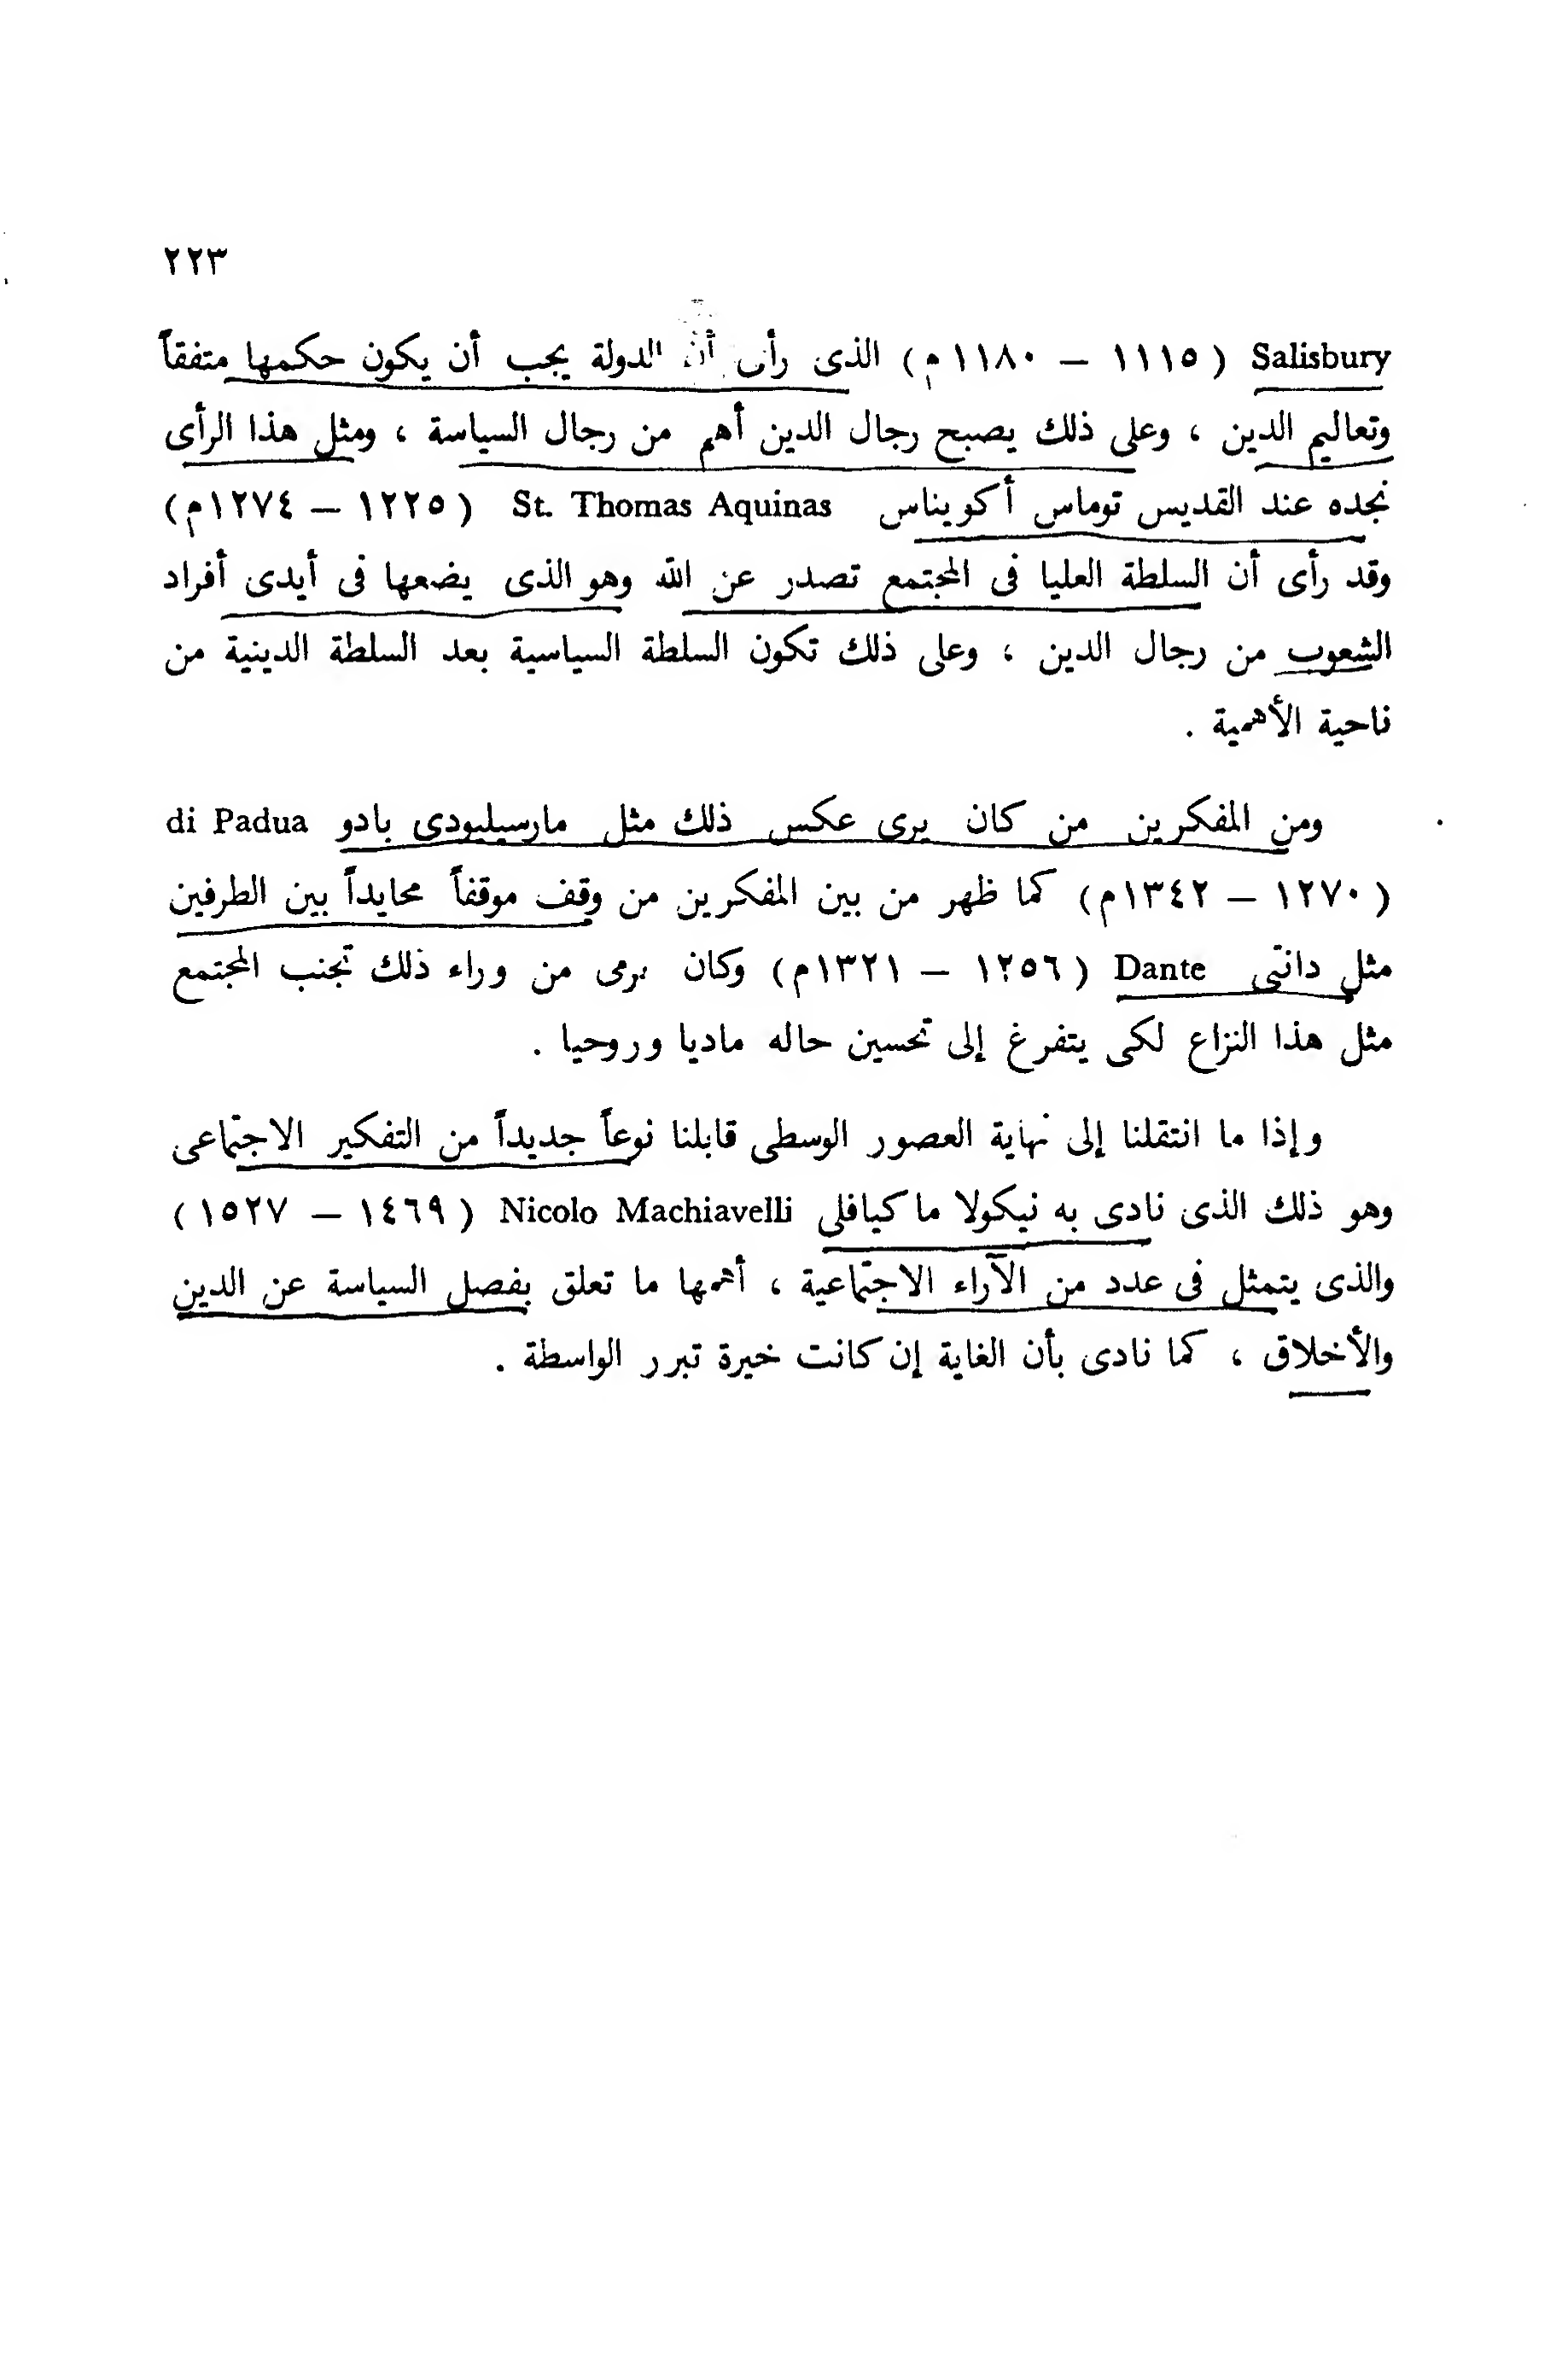 ٢٢٣
Salisbury ( ١١١٥ – ١١٨٠م ) الذى رأى أن الدولة يجب أن يكون حكمها متفقاً
وتعاليم الدين ، وعلى ذلك يصبح رجال الدين أهم من رجال السياسة ، ومثل هذا الرأى
نجده عند القديس توماس أكويناس St. Thomas Aquinas ( ١٢٢٥ – ١٢٧٤م)
وقد رأى أن السلطة العليا فى المجتمع تصدر عن الله وهو الذى يضعها فى أيدى أفراد
الشعوب من رجال الدين ، وعلى ذلك تكون السلطة السياسية بعد السلطة الدينية من
ناحية الأهمية .
ومن المفكرين من كان يرى عكس ذلك مثل مارسيليودى بادو di Padua
( ١٢٧٠ – ١٣٤٢م) كما ظهر من بين المفكرين من وقف موقفاً محايداً بين الطرفين
مثل دانتى Dante ( ١٢٥٦ – ١٣٢١م) وكان يرمى من وراء ذلك تجنب المجتمع
مثل هذا النزاع لكى يتفرغ إلى تحسين حاله ماديا وروحيا .
وإذا ما انتقلنا إلى نهاية العصور الوسطى قابلنا نوعاً جديداً من التفكير الاجتماعى
وهو ذلك الذى نادى به نيكولا ماكيافلى Nicolo Machiavelli ( ١٤٦٩ – ١٥٢٧ )
والذى يتمثل فى عدد من الآراء الاجتماعية ، أهمها ما تعلق بفصل السياسة عن الدين
والأخلاق ، كما نادى بأن الغاية إن كانت خيرة تبرر الواسطة .